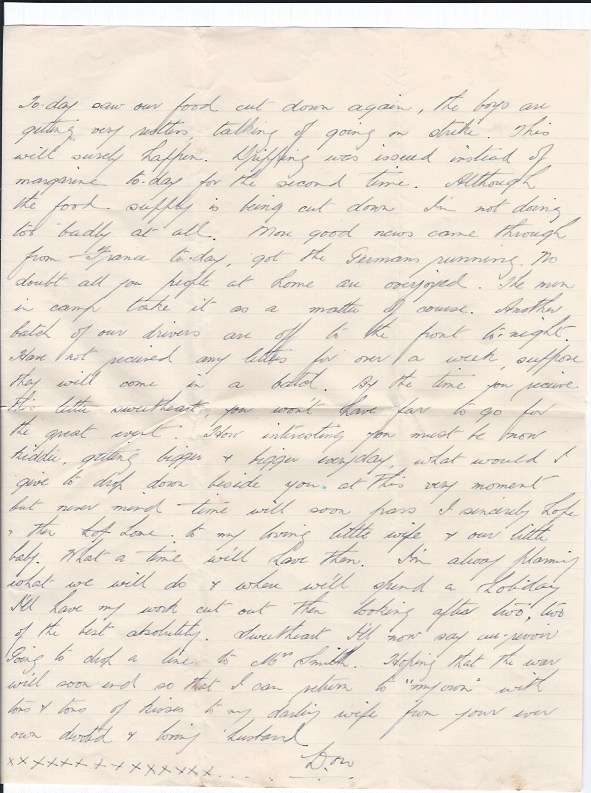 To-day saw our food cut down again, the boys are
getting very restless, talking of going on strike. This
will surely happen. Dripping was issued instead of
margarine to-day for the second time. Although
the food supply is being cut down I'm not doing
too badly at all. More good news came through
from France to-day, got the Germans running. No
doubt all you people at home are overjoyed. The men
in camp take it as a matter of course. Another
batch of our drivers are off to the front to-night.
Have not received any letters for over a week, suppose
they will come in a batch. By the time you receive
this little sweetheart, you won't have far to go for
the great event. How interesting you must be now
kiddie, getting bigger & bigger everyday, what would I
give to drop down beside you at this very moment
but never mind time will soon pass I sincerely hope
& then home to my loving little wife & our little
baby. What a time we'll have then. I'm always planning
what we will do & where we'll spend a holiday
I'll have my work cut out then looking after two, two
of the best absolutely. Sweetheart I'll now say au-revoir
Going to drop a line to Mrs Smith. Hoping that the war
will soon end so that I can return to "my own" with
tons & tons of kisses to my darling wife from your ever
own devoted & loving husband
Don
xxxxxxxxxxxxxxx....